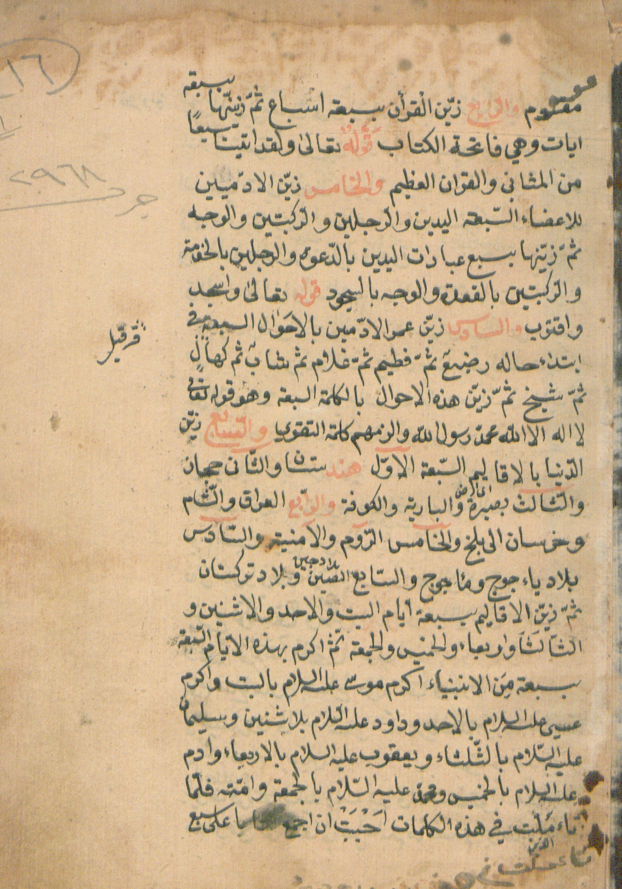 ١٦
٢٩٦٨
جرد
سبعة
مقسوم والرابع زين القرآن بسبعة اسباع ثم زينها
ايات وهي فاتحة الكتاب قوله تعالى ولقد اتيناك سبعا
من المثاني والقران العظيم والخامس زين الادميين
للاعضاء السبعة اليدين والرجلين والركبتين والوجه
ثم زينها بسبع عبادات اليدين بالدعوة والرجلين بالخدمة
والركبتين بالقعدة والوجه بالسجود قوله تعالى واسجد
واقترب والسادس زين عمر الادمين بالاحوال السبعة في
ابتداء حاله رضيع ثم فطيم ثم غلام ثم شاب ثم كهال
ثم شيخ ثم زين هذه الاحوال بالكلمة السبعة وهو قوله تعالى
لا اله الا الله محمد رسول الله والزمهم كلمة التقوى والسابع زين
الدنيا بالاقاليم السبعة الاول هند والثاني حجاز
والثالث بصرة والبادية والكوفة والرابع العراق والشام
وخرسان الى بلخ والخامس الروم والامنية والسادس
بلاد ياءجوج وماجوج والسابع الصين وبلاد تركستان
ثم زين الاقاليم بسبعة ايام السبت والاحد والاثنين و
الثالثا واربعاء والخميس والجمعة ثم اكرم بهذه الايام السبعة
سبعة من الانبياء اكرم موسى عليه السلام بالسبت واكرم
عيسى عليه السلام بالاحد وداود عليه السلام بلاثنين وسليمان
عليه السلام بالثلثاء ويعقوب عليه السلام بالاربعاء وادم
عليه السلام بالخميس ومحمد عليه السلام بالجمعة وامته فلما
تاءملت في هذه الكلمات احببت ان اجمع على سبع